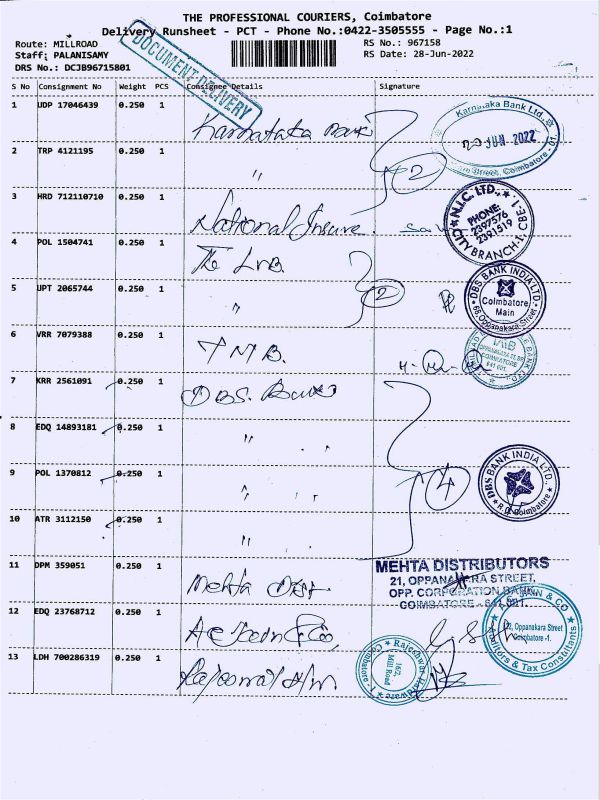 THE PROFESSIONAL COURIERS, Coimbatore
Delivery Runsheet - PCT - Phone No.:0422-3505555 - Page No.:1
Route: MILLROAD RS No.: 967158
Staff: PALANISAMY RS Date: 28-Jun-2022
DRS No.: DCJB96715801
DOCUMENT DELIVERY
S No Consignment No Weight PCS Consignee Details Signature
1 UDP 17046439 0.250 1
Karnataka Bank
Karnataka Bank Ltd.,
JUN 2022
Street, Coimbatore - 01
2 TRP 4121195 0.250 1
"
2
3 HRD 712110710 0.250 1
National Insure.
N.I.C. LTD.,
PHONE:
2397576
2391519
CITY BRANCH-1, CBE-1
4 POL 1504741 0.250 1
The LVB.
5 UPT 2065744 0.250 1
"
2
DBS BANK INDIA LTD.
Coimbatore
Main
68, Oppanakara Street
6 VRR 7079388 0.250 1
TMB.
COIMBATORE
641 001
7 KRR 2561091 0.250 1
DBS. Bank
8 EDQ 14893181 0.250 1
"
9 POL 1370812 0.250 1
"
4
DBS BANK INDIA LTD.,
Coimbatore
10 ATR 3112150 0.250 1
"
11 DPM 359051 0.250 1
Mehta Dist
MEHTA DISTRIBUTORS
21, OPPANAKARA STREET,
OPP. CORPORATION BANK,
COIMBATORE - 641 001.
12 EDQ 23768712 0.250 1
& CO
Oppanakara Street
Coimbatore -1.
Auditors & Tax Consultants
13 LDH 700286319 0.250 1
Rajeswari H/w
Rajeshwari Hardware
167,
Mill Road
Coimbatore - 1